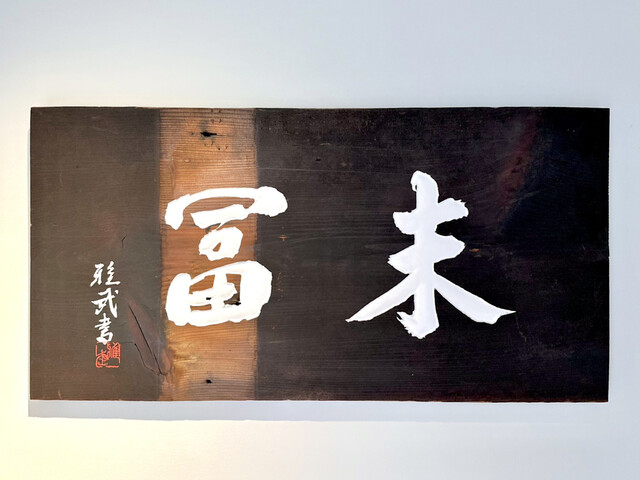 末冨
雅武書